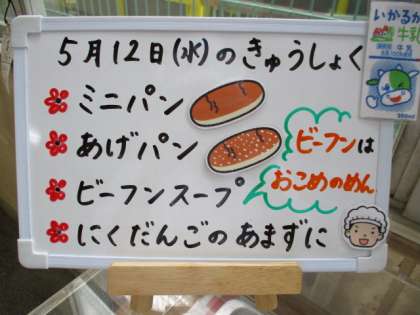 5月12日(水)のきゅうしょく
ミニパン
あげパン
ビーフンスープ
にくだんごのあまずに
ビーフンは
おこめのめん
いかるが
牛乳